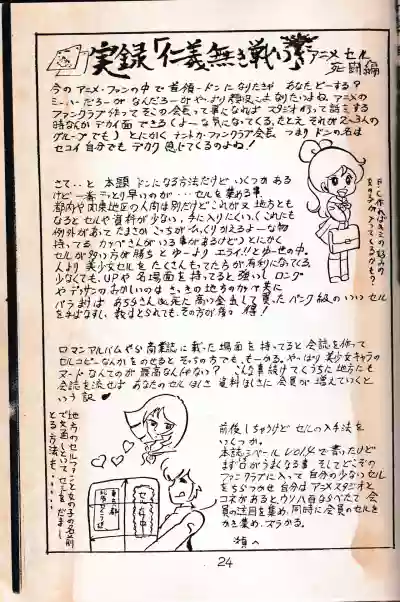 実録「仁義無き戦い」
アニメセル
死闘編
今のアニメ・ファンの中で首領・ドンになりたきゃ あなたどーする?
ミーハーだろーがなんだろーがやっぱり親分にもなりたいよね。アニメの
ファンクラブ作ってそこの会長って事になればスタジオ行って話する
時なんかデカイ面できるくよーな気になってくる。たとえそれが2〜3人の
グループでも! とにかくナントカ・ファンクラブ会長 つまりドンの名は
セコイ自分でもデカク見せてくるのよね!
さて‥と 本題 ドンになる方法だけどいくつかある
けど一番手っとり早いのが…セルを集める事
都内や関東地区の人向は別だけどこれが又地方とも
なるとセルや資料が少ない、手に入りにくい(これも
例外があってたまさか こっちがひっくりかえるよーな物
持ってる 方がいる事があるけど)とにかく
セルが多い方が勝ちとゆーよりエライ!!とゆー世の中。
人より美少女セルをたくさんもってた方が有利になってくる
少なくても、UPや名場面を持ってると強いし ロング
やデッサンのおかしいのは
バラまけば あちらさんは死に 高い金出して買った バンク級のいいセル
を手ばなすし、
得!
ロマンアルバムやら商業誌に載った場面を持ってると会誌を作って
セルコピーなんかをのせるとその方でも、もーかる。やっぱり美少女キャラの
ヌードなんてのが最高なんじゃない? こんな事続けてくうちに地方にも
会誌を流せば あなたのセルほしさ 資料ほしさに会員が増えていくと
いう訳
地方のセルファンと女の子の名前
で文通していってセルをだまし
とる方法も・・・・・
前後しちゃうけど セルの入手法を
いくつか。
本誌シベール Vol.4で書いたけど
まず口がうまくなる事 そしてどこぞの
ファンクラブに入って 自分の少ないセル
をちらつかせ 自分はアニメスタジオと
コネがあると、ウソ八百ならべたて 会
員の注目を集め、同時に会員のセルを
かき集め、ズラかる。
24